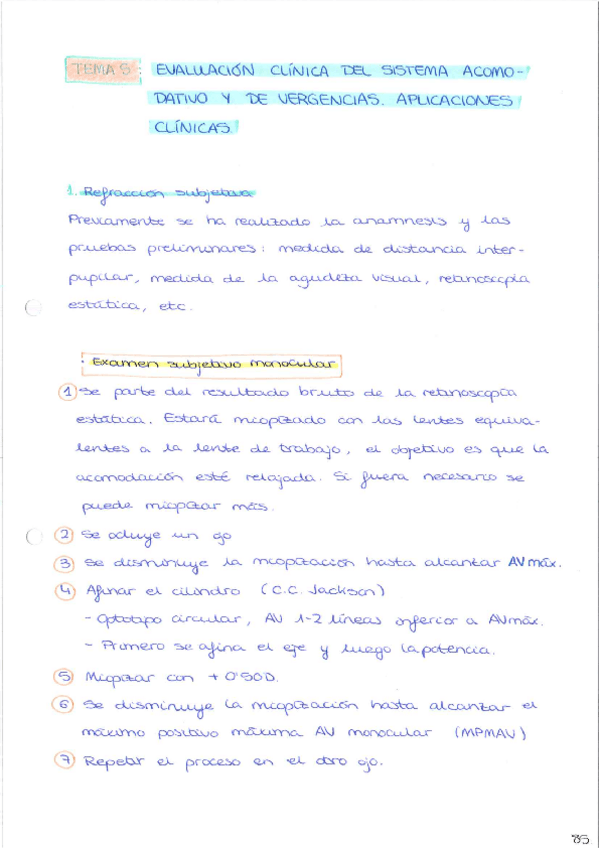 TEMA 5: EVALUACIÓN CLÍNICA DEL SISTEMA ACOMO-
DATIVO Y DE VERGENCIAS. APLICACIONES
CLÍNICAS.
1. Refracción subjetiva
Previamente se ha realizado la anamnesis y las
pruebas preliminares: medida de distancia inter-
pupilar, medida de la agudeza visual, retinoscopia
estática, etc.
· Examen subjetivo monocular
1 Se parte del resultado bruto de la retinoscopía
estática. Estará miopizado con las lentes equiva-
lentes a la lente de trabajo, el objetivo es que la
acomodación esté relajada. Si fuera necesario se
puede miopizar más.
2 Se ocluye un ojo
3 Se disminuye la miopización hasta alcanzar AVmáx.
4 Afinar el cilindro (C.C. Jackson)
- Optotipo circular, AV 1-2 líneas inferior a AVmáx.
- Primero se afina el eje y luego la potencia.
5 Miopizar con +0'50D.
6 Se disminuye la miopización hasta alcanzar el
máximo positivo máxima AV monocular (MPMAV)
7 Repetir el proceso en el otro ojo.
85